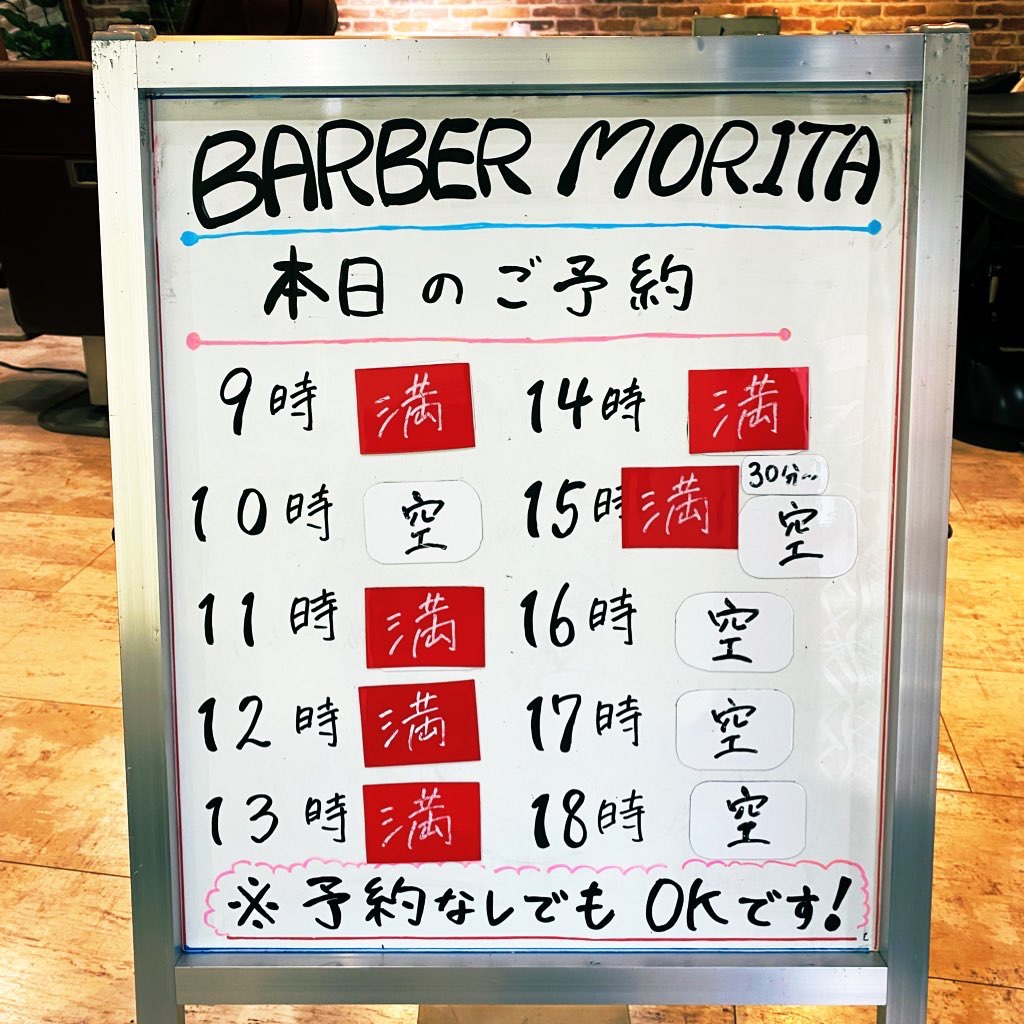 BARBER MORITA
本日のご予約
9時 満
10時 空
11時 満
12時 満
13時 満
14時 満
15時 満 30分~ 空
16時 空
17時 空
18時 空
※予約なしでもOKです!